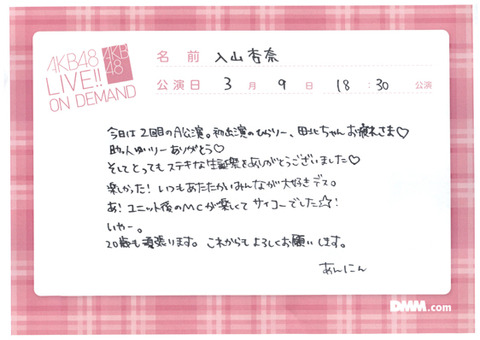 AKB48
LIVE!!
ON DEMAND
AKB
48
名前 入山杏奈
公演日 3月9日 18:30 公演
今日は2回目のA公演。初出演のひらりー、田北ちゃんお疲れさま♡
助っ人ゆいりーありがとう♡
そしてとってもステキな生誕祭をありがとうございました♡
楽しかった!いつもあたたかいみんなが大好きデス。
あ!ユニット後のMCが楽しくてサイコーでした☆!
いやー。
20歳も頑張ります。これからもよろしくお願いします。
あんにん
DMM.com